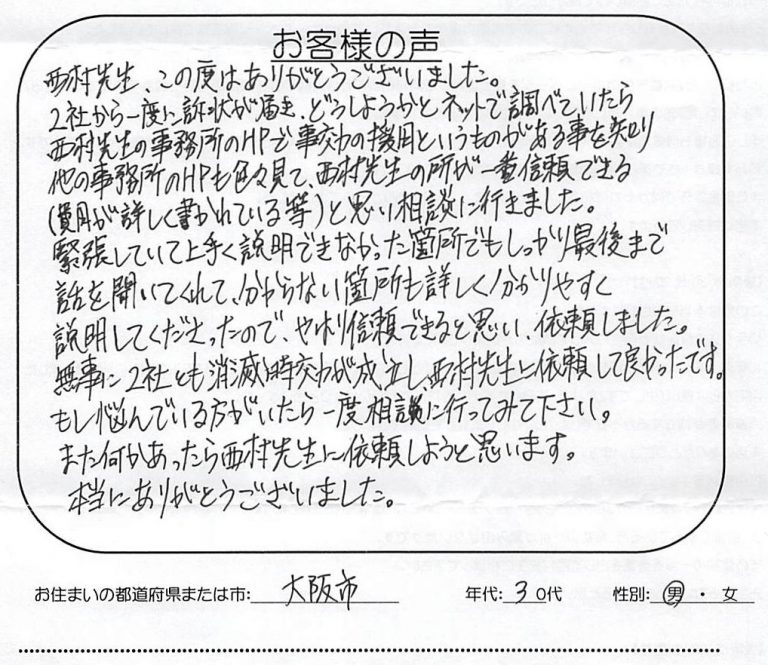 お客様の声
西村先生、この度はありがとうございました。
2社から一度に訴状が届き、どうしようかとネットで調べていたら
西村先生の事務所のHPで事効の援用というものがある事を知り
他の事務所のHPも色々見て、西村先生の所が一番信頼できる
(費用が詳しく書かれている等)と思い相談に行きました。
緊張していて上手く説明できなかった箇所でもしっかり最後まで
話を聞いてくれて、分からない箇所も詳しく分かりやすく
説明してくださったので、やはり信頼できると思い、依頼しました。
無事に2社とも消滅時効が成立し、西村先生に依頼して良かったです。
もし悩んでいる方がいたら一度相談に行ってみて下さい。
また何かあったら西村先生に依頼しようと思います。
本当にありがとうございました。
お住まいの都道府県または市: 大阪市 年代: 30代 性別: 男・女